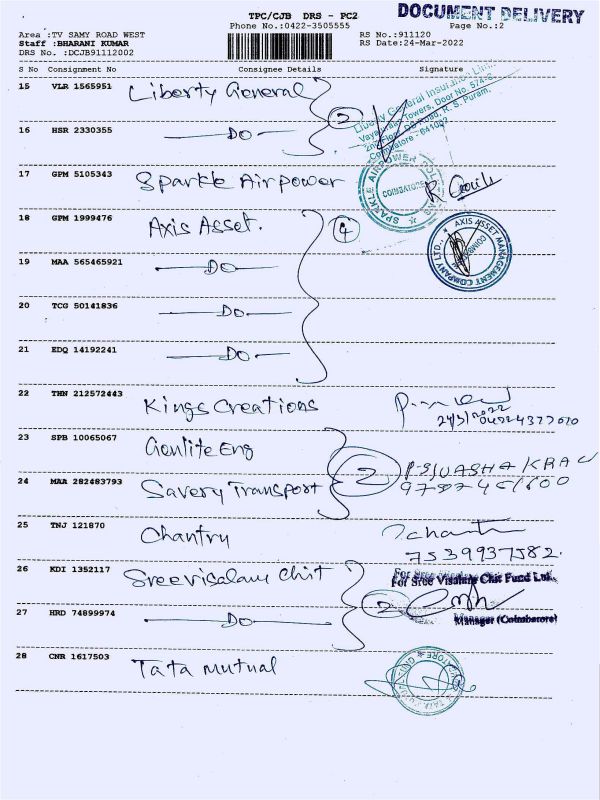 TPC/CJB DRS - PC2
DOCUMENT DELIVERY
Phone No.:0422-3505555
Page No.:2
Area :TV SAMY ROAD WEST
RS No.:911120
Staff :BHARANI KUMAR
RS Date:24-Mar-2022
DRS No. :DCJB91112002
S No Consignment No Consignee Details Signature
15 VLR 1565951 Liberty General
Liberty General Insurance
Towers, Door No. 574-
Road, R. S. Puram,
Coimbatore - 641002
2
16 HSR 2330355 DO
17 GPM 5105343 Sparkle Airpower
SPARKLE AIRPOWER
COIMBATORE
R
18 GPM 1999476 Axis Asset.
4
AXIS ASSET MANAGEMENT COMPANY LTD.
19 MAA 565465921 DO
20 TCG 50141836 DO
21 EDQ 14192241 DO
22 THN 212572443 Kings Creations
24/3/2022
23 SPB 10065067 Genlite Eng
2
24 MAA 282483793 Savery Transport
25 TNJ 121870 Chantry
7539937582.
26 KDI 1352117 Sreevisalam Chit
For Sree Visalam Chit Fund Ltd.
2
27 HRD 74899974 DO
Manager (Coimbatore)
28 CNR 1617503 Tata mutual